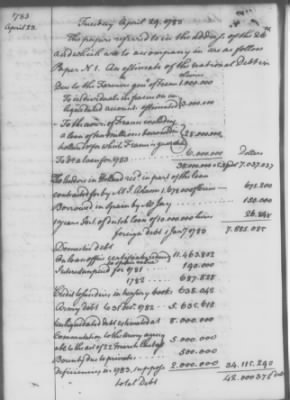 1783
April 29.
Tuesday April 29. 1783
The papers referred to in the address of the 26
and which are to accompany it are as follows
Paper No 1. An estimate of the national Debt viz
Due to the Farmers gen.l of France 1.000.000
livres
To individuals in France on un-
liquidated accounts estimated 3.000.000
To the crown of France including
a loan of ten millions borrowed in
Holland for which France is guarantee 28.000.000
To do a loan for 1783 6.000.000
Dollars
38.000.000 7.037.037
To lenders in Holland rec'd in part of the loan
contracted for by Mr J. Adams 1.678.000 florins 671.200
Borrowed in Spain by Mr Jay 150.000
1 years Int. of dutch loan of 10.000.000 livres 26.848
foreign debt 1 Jan.y 1783 7.885.085
Domestic debt
On loan office 11.463.802
Interest unpaid for 1781 190.000
1782 687.828
Credit to sundries in treasury books 638.042
Army debt to 31 Dec. 1782 5.635.618
Unliquidated debt estimated at 8.000.000
Commutation to the army agree-
able to the act of 22 March last 5.000.000
Bounty due to privates 500.000
Deficiencies in 1783. suppose 2.000.000 34.115.290
total Debt 42.000.375